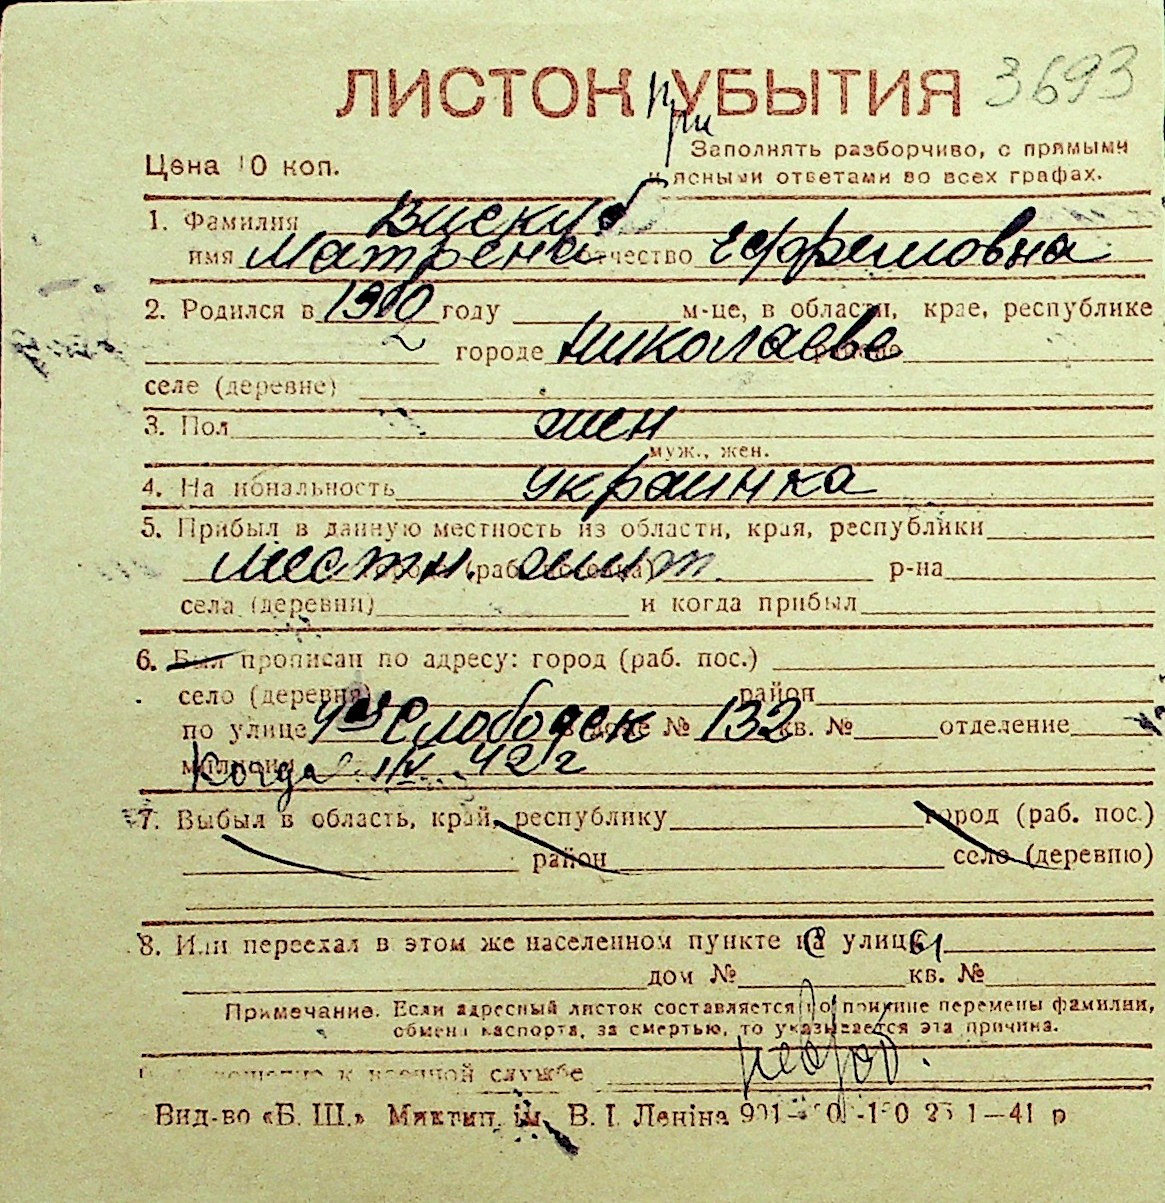 ЛИСТОК при УБЫТИЯ 3693
Цена 10 коп.
Заполнять разборчиво, с прямыми
и ясными ответами во всех графах.
1. Фамилия
имя Матрена отчество Ефремовна
2. Родился в 1902 году м-це, в области, крае, республике
городе Николаеве районе
селе (деревне)
3. Пол жен
муж., жен.
4. Национальность украинка
5. Прибыл в данную местность из области, края, республики
местн. жит. р-на
села (деревни) и когда прибыл
6. Был прописан по адресу: город (раб. пос.)
село (деревня) район
по улице Слободск доме № 132 кв. № отделение
милиции Когда 42 г
7. Выбыл в область, край, республику город (раб. пос.)
район село (деревню)
8. Или переехал в этом же населенном пункте на улицу
дом № кв. №
Примечание. Если адресный листок составляется по причине перемены фамилии,
обмена паспорта, за смертью, то указывается эта причина.
к военной службе
Вид-во «Б. Ш.» Миктип. ім. В. І. Леніна